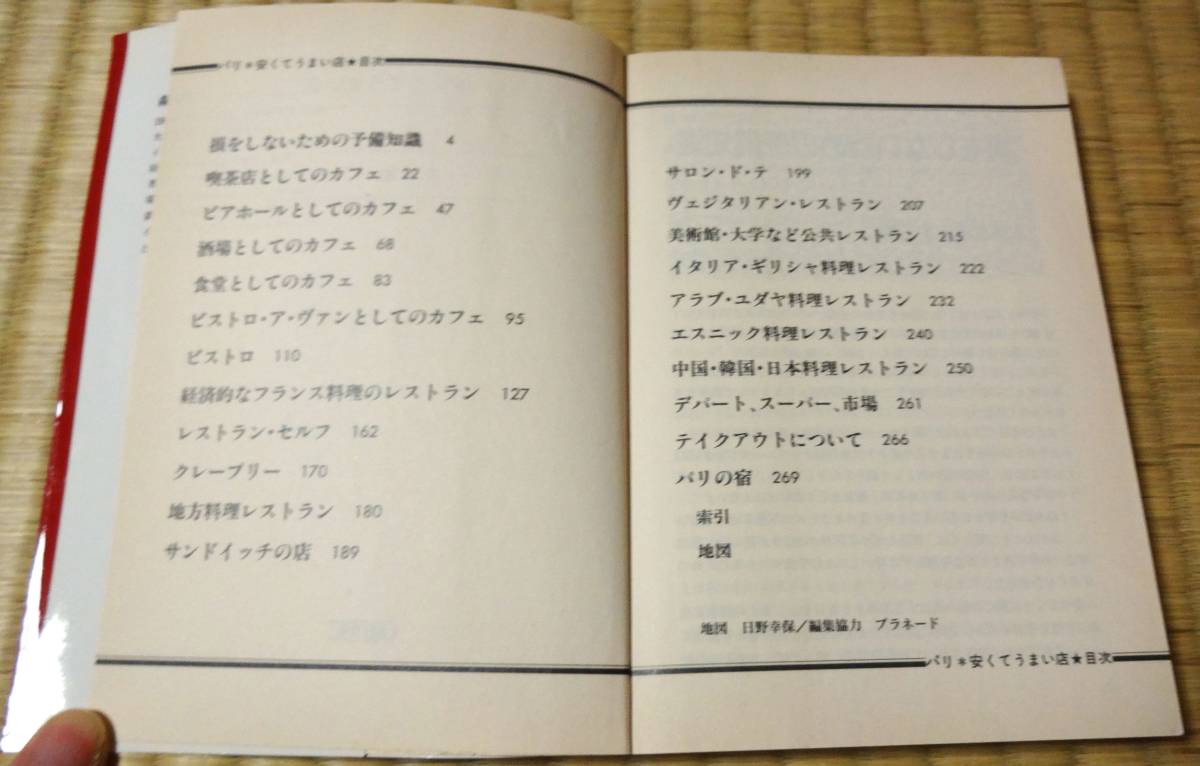 パリ＊安くてうまい店★目次
損をしないための予備知識 4
喫茶店としてのカフェ 22
ビアホールとしてのカフェ 47
酒場としてのカフェ 68
食堂としてのカフェ 83
ビストロ・ア・ヴァンとしてのカフェ 95
ビストロ 110
経済的なフランス料理のレストラン 127
レストラン・セルフ 162
クレープリー 170
地方料理レストラン 180
サンドイッチの店 189
サロン・ド・テ 199
ヴェジタリアン・レストラン 207
美術館・大学など公共レストラン 215
イタリア・ギリシャ料理レストラン 222
アラブ・ユダヤ料理レストラン 232
エスニック料理レストラン 240
中国・韓国・日本料理レストラン 250
デパート、スーパー、市場 261
テイクアウトについて 266
パリの宿 269
索引
地図
地図 日野幸保／編集協力 プラネード
パリ＊安くてうまい店★目次